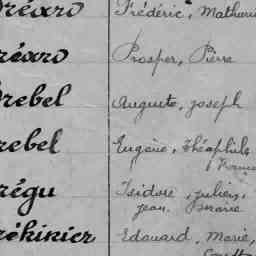 réard Frédéric, Mathuri
réard Prosper, Pierre
rebel Auguste, Joseph
rebel Eugène, Théophile
régu Isidore, Julien,
Jean
réhinier Edouard, Marie,